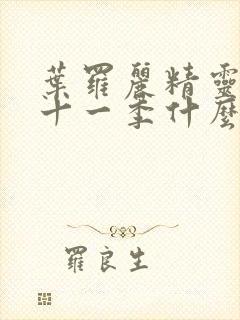 葉羅麗精靈
十一季什麼
羅良生